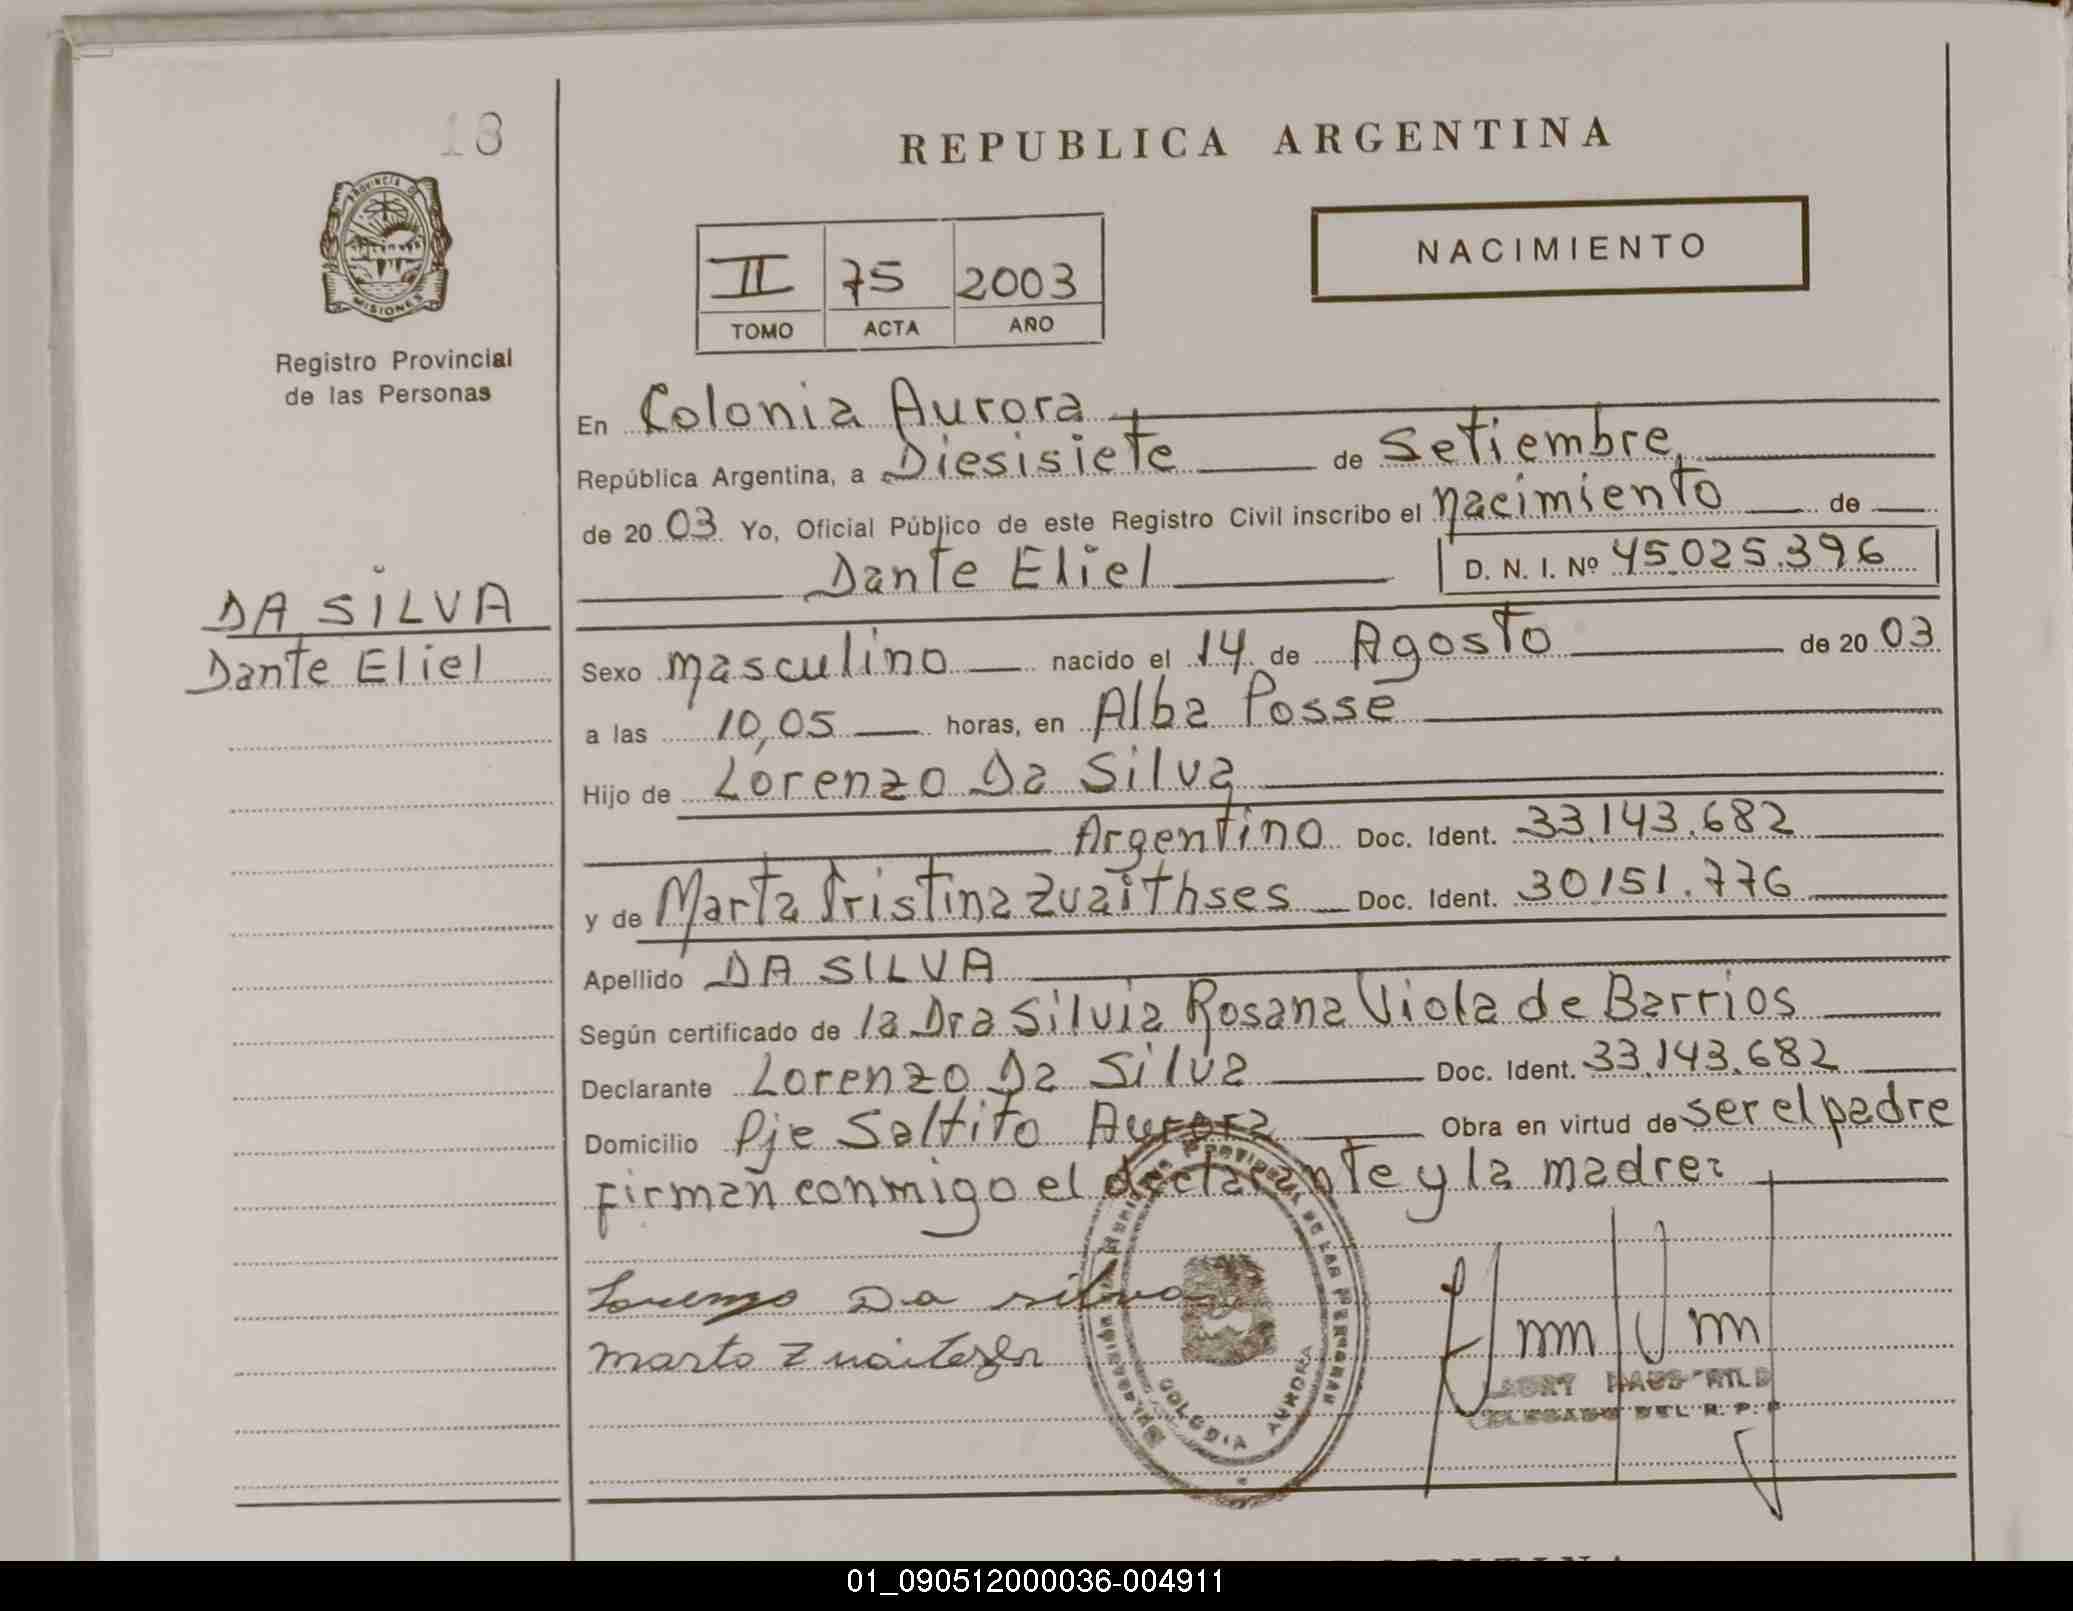 18
REPUBLICA ARGENTINA
PROVINCIA DE
MISIONES
Registro Provincial
de las Personas
II 75 2003
TOMO ACTA AÑO
NACIMIENTO
En Colonia Aurora
República Argentina, a Diesisiete de Setiembre
de 2003 Yo, Oficial Público de este Registro Civil inscribo el nacimiento de
Dante Eliel D. N. I. Nº 45.025.396
DA SILVA
Dante Eliel
Sexo masculino nacido el 14 de Agosto de 2003
a las 10,05 horas, en Alba Posse
Hijo de Lorenzo Da Silva
Argentino Doc. Ident. 33.143.682
y de Marta Cristina Zuaithses Doc. Ident. 30151.776
Apellido DA SILVA
Según certificado de la Dra Silvia Rosana Viola de Barrios
Declarante Lorenzo Da Silva Doc. Ident. 33.143.682
Domicilio Pje Saltito Aurora Obra en virtud de ser el padre
firman conmigo el declarante y la madre
Lorenzo Da silva
Marta
DELEGADO DEL R. P. P
COLONIA AURORA
01_090512000036-004911